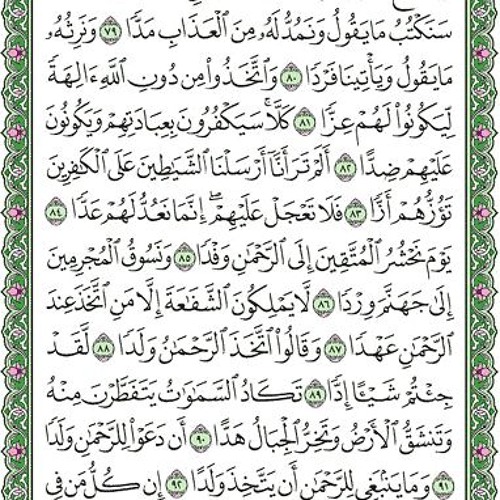 سَنَكْتُبُ مَا يَقُولُ وَنَمُدُّ لَهُۥ مِنَ ٱلْعَذَابِ مَدًّا ٧٩ وَنَرِثُهُۥ
مَا يَقُولُ وَيَأْتِينَا فَرْدًا ٨٠ وَٱتَّخَذُوا۟ مِن دُونِ ٱللَّهِ ءَالِهَةً
لِّيَكُونُوا۟ لَهُمْ عِزًّا ٨١ كَلَّا ۚ سَيَكْفُرُونَ بِعِبَادَتِهِمْ وَيَكُونُونَ
عَلَيْهِمْ ضِدًّا ٨٢ أَلَمْ تَرَ أَنَّآ أَرْسَلْنَا ٱلشَّيَٰطِينَ عَلَى ٱلْكَٰفِرِينَ
تَؤُزُّهُمْ أَزًّا ٨٣ فَلَا تَعْجَلْ عَلَيْهِمْ ۖ إِنَّمَا نَعُدُّ لَهُمْ عَدًّا ٨٤
يَوْمَ نَحْشُرُ ٱلْمُتَّقِينَ إِلَى ٱلرَّحْمَٰنِ وَفْدًا ٨٥ وَنَسُوقُ ٱلْمُجْرِمِينَ
إِلَىٰ جَهَنَّمَ وِرْدًا ٨٦ لَّا يَمْلِكُونَ ٱلشَّفَٰعَةَ إِلَّا مَنِ ٱتَّخَذَ عِندَ
ٱلرَّحْمَٰنِ عَهْدًا ٨٧ وَقَالُوا۟ ٱتَّخَذَ ٱلرَّحْمَٰنُ وَلَدًا ٨٨ لَّقَدْ
جِئْتُمْ شَيْـًٔا إِدًّا ٨٩ تَكَادُ ٱلسَّمَٰوَٰتُ يَتَفَطَّرْنَ مِنْهُ
وَتَنشَقُّ ٱلْأَرْضُ وَتَخِرُّ ٱلْجِبَالُ هَدًّا ٩٠ أَن دَعَوْا۟ لِلرَّحْمَٰنِ وَلَدًا
٩١ وَمَا يَنۢبَغِى لِلرَّحْمَٰنِ أَن يَتَّخِذَ وَلَدًا ٩٢ إِن كُلُّ مَن فِى